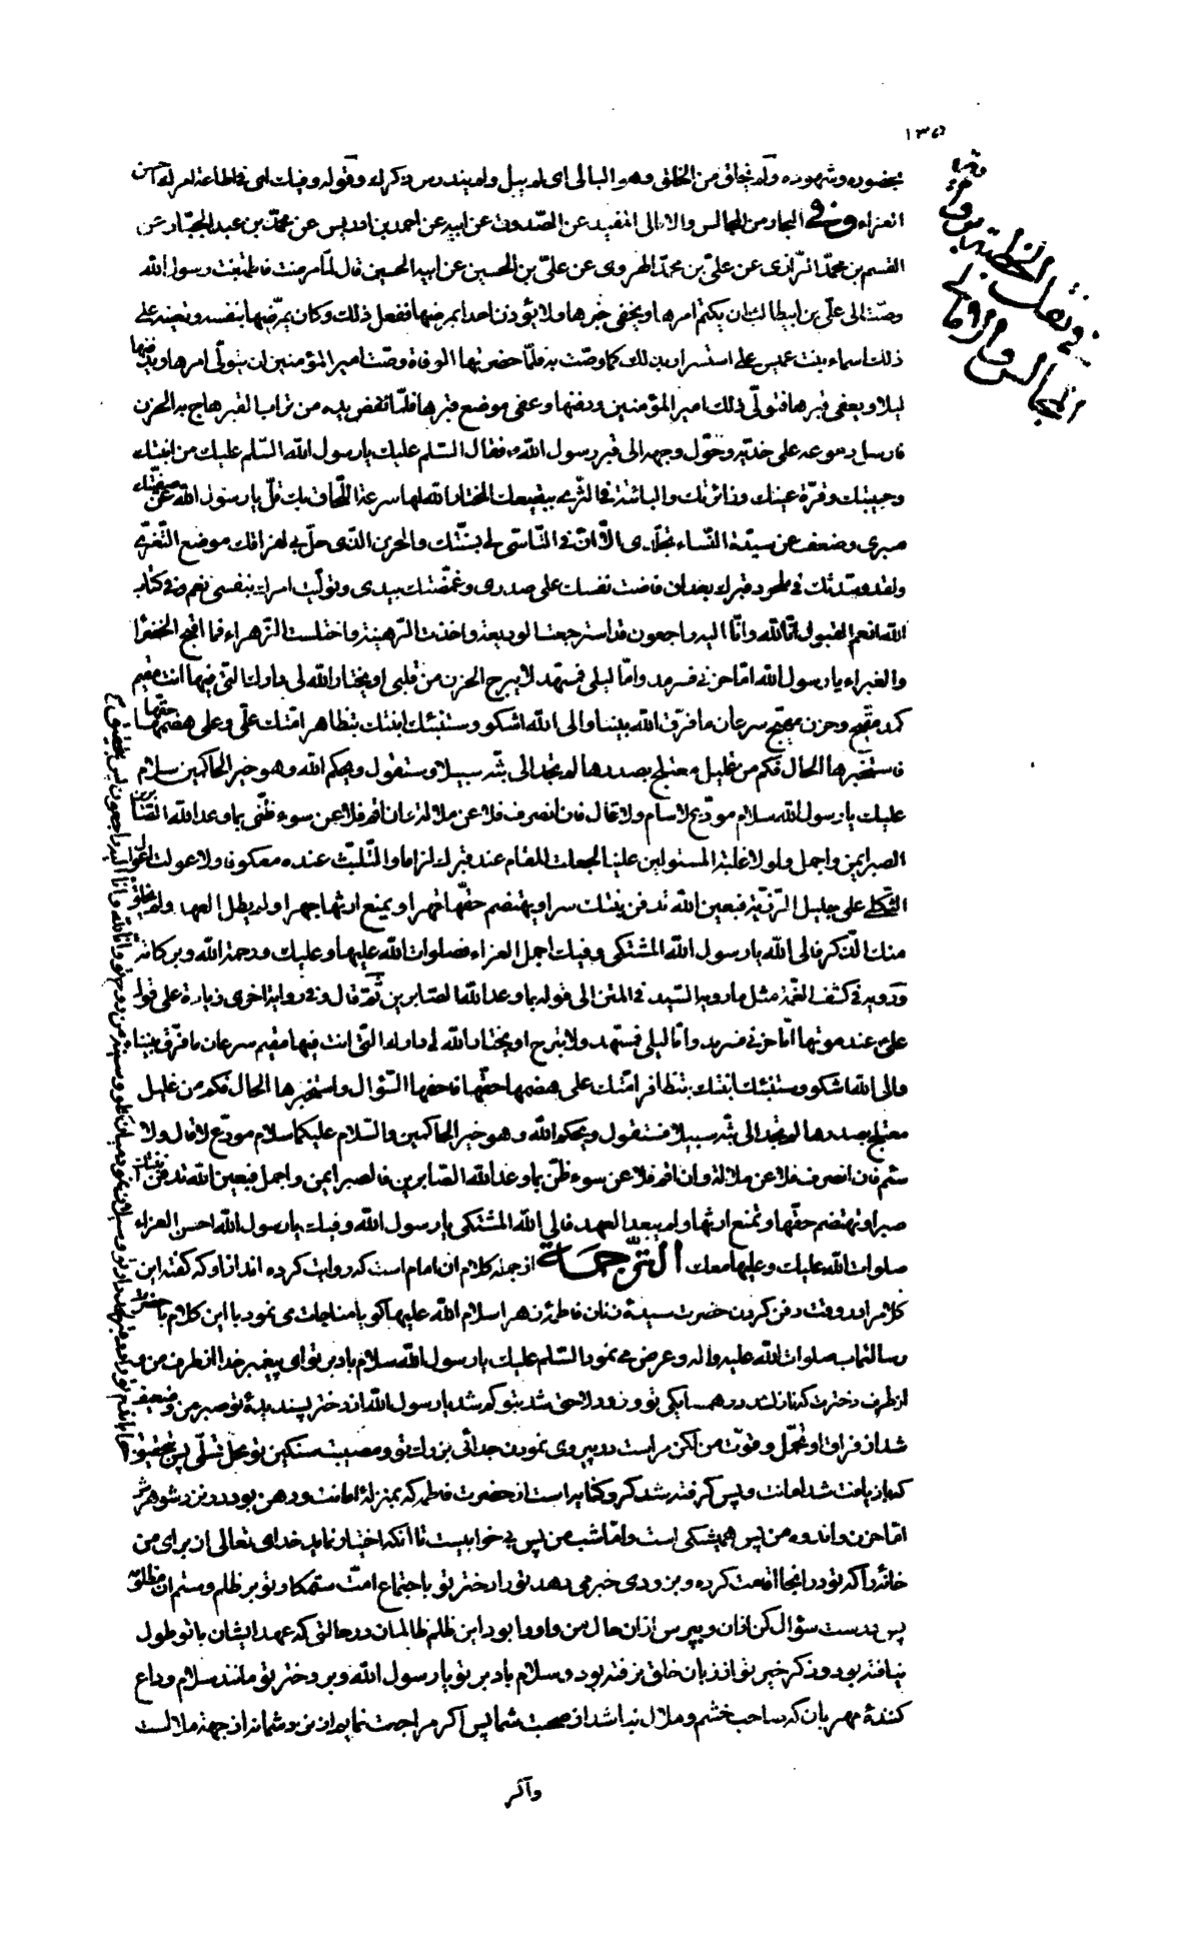 بحضوره وشهوده ولم یخلق من الخلق وهو البالی ای لم یبل ولم یندرس ذکرك وقوله وفیك ای فی اطاعة امرك احسن
العزاء وفی البحار من المجالس والامالی المفید عن الصّدوق عن ابیه عن احمد بن ادریس عن محمّد بن عبد الجبّار عن
القسم بن محمّد الرّازی عن علیّ بن محمّد الهروی عن علیّ بن الحسین عن ابیه الحسین قال لمّا مرضت فاطمة بنت رسول الله
وصّت الی علیّ بن ابیطالب ان یکتم امرها ویخفی خبرها ولا یؤذن احدا بمرضها ففعل ذلك وکان یمرّضها بنفسه وتعینه علی
ذلك اسماء بنت عمیس علی استسرار بذلك کما وصّت به فلمّا حضرتها الوفاة وصّت امیر المؤمنین ان یتولّی امرها ویدفنها
لیلا ویعفی قبرها فتولّی ذلك امیر المؤمنین ودفنها وعفی موضع قبرها فلمّا نفض یده من تراب القبر هاج به الحزن
فارسل دموعه علی خدّیه وحوّل وجهه الی قبر رسول الله ص فقال السّلم علیك یا رسول الله السّلم علیك من ابنتك
وحبیبتك وقرّة عینك وزائرتك والبائتة فی الثّری ببقیعك المختار الله لها سرعة اللّحاق بك قلّ یا رسول الله عن صفیّتك
صبری وضعف عن سیّدة النّساء تجلّدی الّا انّ فی التّاسّی لی بسنّتك والحزن الّذی حلّ بی لفراقك موضع التّعزّی
ولقد وسّدتك فی ملحود قبرك بعد ان فاضت نفسك علی صدری وغمّضتك بیدی وتولّیت امرك بنفسی نعم وفی کتاب
الله انعم القبول انّا لله وانّا الیه راجعون قد استرجعت الودیعة واخذت الرّهینة واختلست الزّهراء فما اقبح الخضراء
والغبراء یا رسول الله امّا حزنی فسرمد وامّا لیلی فمسهّد لا یبرح الحزن من قلبی او یختار الله لی دارك الّتی فیها انت مقیم
کمد مقیّح وحزن مهیّج سرعان ما فرّق الله بیننا والی الله اشکو وستنبئك ابنتك بتظاهر امّتك علیّ وعلی هضمها حقّها
فاستخبرها الحال فکم من غلیل معتلج بصدرها لم تجد الی بثّه سبیلا وستقول ویحکم الله وهو خیر الحاکمین سلام
علیك یا رسول الله سلام مودّع لا سام ولا قال فان انصرف فلا عن ملالة وان اقم فلا عن سوء ظنّی بما وعد الله الصّابرین
الصبر ایمن واجمل ولولا غلبة المستولین علینا لجعلت المقام عند قبرك لزاما والتّلبّث عنده معکوفا ولاعولت اعوال
الثّکلی علی جلیل الرّزیّة فبعین الله تدفن بنتك سرا ویهتضم حقّها قهرا ویمنع ارثها جهرا ولم یطل العهد ولم یخلق
منك الذّکر فالی الله یا رسول الله المشتکی وفیك اجمل العزاء فصلوات الله علیها وعلیك ورحمة الله وبرکاته
وروی فی کشف الغمّة مثل ما رویه السّید فی المتن الی قوله بما وعد الله الصّابرین ثمّ قال وفی روایة اخری زیادة علی قول
علیّ عند موتها امّا حزنی فسرمد وامّا لیلی فمسهّد ولا یبرح او یختار الله لی دارك الّتی انت فیها مقیم سرعان ما فرّق بیننا
والی الله اشکو وستنبئك ابنتك بتظافر امّتك علی هضمها حقّها فاحفها السّؤال واستخبرها الحال فکم من غلیل
معتلج بصدرها لم تجد الی بثّه سبیلا فستقول ویحکم الله وهو خیر الحاکمین والسّلام علیکما سلام مودّع لا قال ولا
سئم فان انصرف فلا عن ملالة وان اقم فلا عن سوء ظنّ بما وعد الله الصّابرین فالصبر ایمن واجمل فبعین الله تدفن ابنتك
سرا وتهتضم حقّها وتمنع ارثها ولم یبعد العهد فالی الله المشتکی یا رسول الله وفیك یا رسول الله احسن العزاء
صلوات الله علیك وعلیها معك التّرجمة از جمله کلام ان امام است که روایت کرده اند از او که گفته این
کلام را در وقت دفن کردن حضرت سیّدة زنان فاطمة زهرا سلام الله علیها گویا مناجات می نمود با این کلام با حضرت
رسالتماب صلوات الله علیه واله و عرض می نمود السّلم علیك یا رسول الله سلام باد بر تو ای پیغمبر خدا از طرف من و
از طرف دخترت که نازل شد در همسایگی تو و زود لاحق شد بتو کم شد یا رسول الله از دختر پسندیدهٔ تو صبر من وضعیف
شد از فراق او تحمّل و قوّت من لکن مرا است در پیروی نمودن جدائی بزرك تو و مصیبت سنگین تو محلّ تسلّی پس بتحقیق
که باز یافت شد امانت و پس گرفته شد گرو کنایه است از حضرت فاطمه که بمنزلهٔ امانت و رهن بود در نزد شوهرش
امّا حزن و اندوه من پس همیشگی است و امّا شب من پس بی خوابیست تا آنکه اختیار نماید خدای تعالی از برای من
خانهٔ را که تو در انجا اقامت کرده و بزودی خبر می دهد تو را دختر تو باجتماع امّت ستمکار تو بر ظلم و ستم ان مظلومه
پس درست سؤال کن از ان و بپرس از ان حال من و او را بود این ظلم ظالمان در حالتی که عهد ایشان با تو طول
نیافته بود و ذکر خیر تو از زبان خلق نرفته بود و سلام باد بر تو یا رسول الله و بر دختر تو مانند سلام وداع
کنندهٔ مهربان که صاحب خشم و ملال نباشد از صحبت شما پس اگر مراجعت نمایم از نزد شما نه از جهة ملالست
واگر
وفی نقل الخطبة بروایة
المجالس والامالی